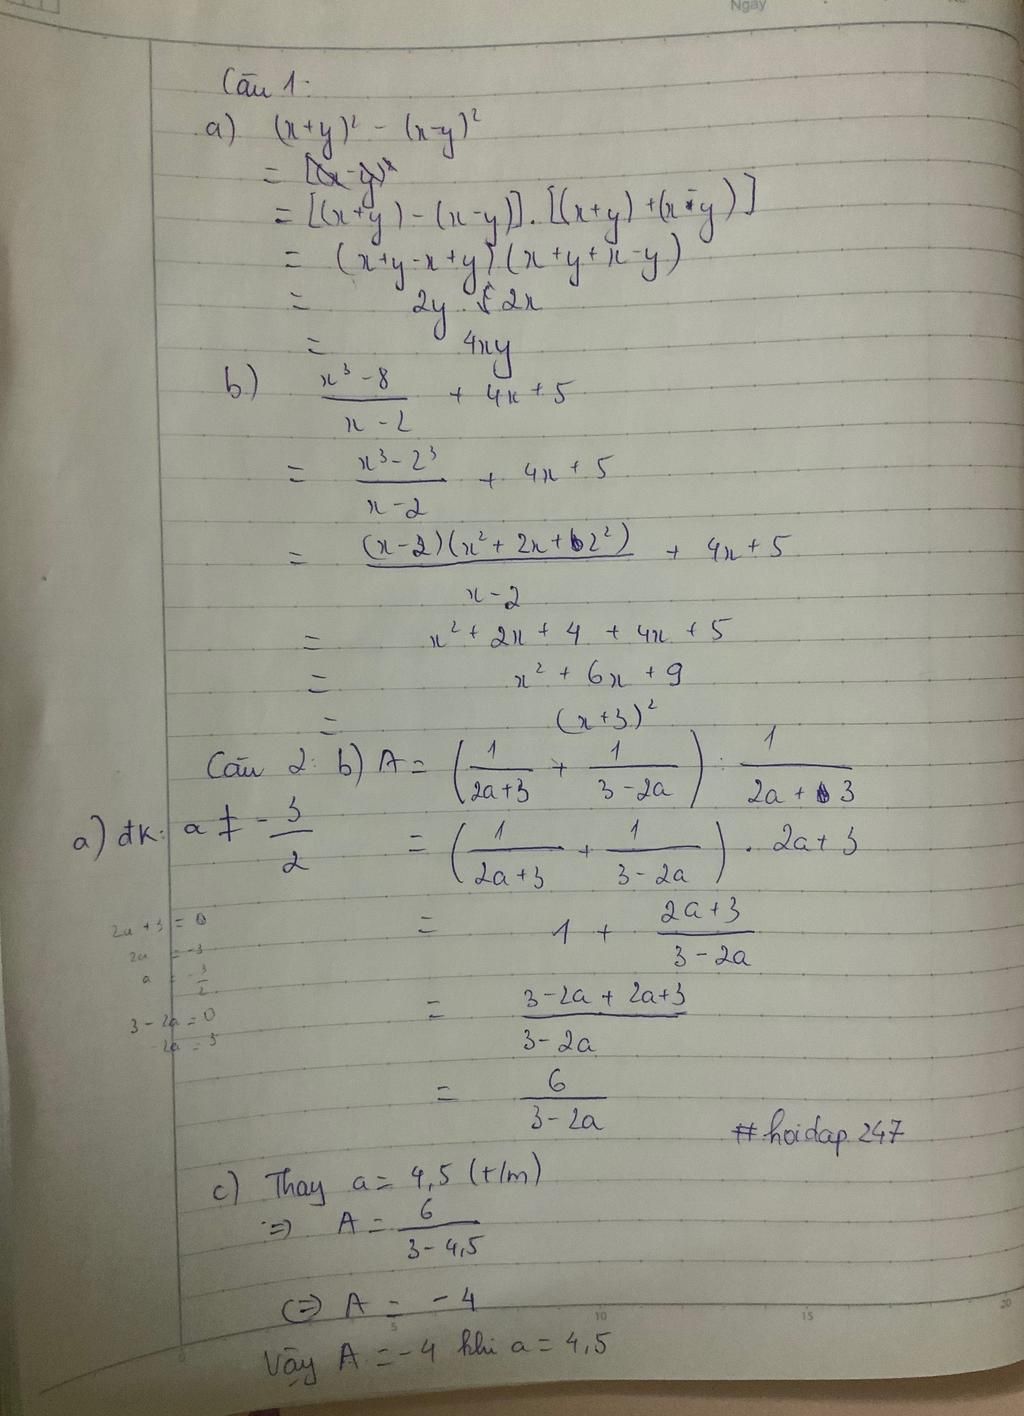 Ngày
Câu 1:
a) (x+y)² - (x-y)²
= [(x+y) - (x-y)] . [(x+y) + (x-y)]
= (x+y-x+y)(x+y+x-y)
= 2y . 2x
= 4xy
b) \frac{x³-8}{x-2} + 4x+5
= \frac{x³-2³}{x-2} + 4x+5
= \frac{(x-2)(x²+2x+2²)}{x-2} + 4x+5
= x²+2x+4 + 4x+5
= x² + 6x + 9
= (x+3)²
Câu 2: b) A = (\frac{1}{2a+3} + \frac{1}{3-2a}) : \frac{1}{2a+3}
a) đk: a ≠ -\frac{3}{2}
= (\frac{1}{2a+3} + \frac{1}{3-2a}) . 2a+3
2a+3 = 0
2a = -3
a = -\frac{3}{2}
3-2a = 0
= 1 + \frac{2a+3}{3-2a}
= \frac{3-2a+2a+3}{3-2a}
= \frac{6}{3-2a}
#hoidap247
c) Thay a = 4,5 (t/m)
=> A = \frac{6}{3-4,5}
(=) A = -4
Vậy A = -4 khi a = 4,5
5 10 15 20